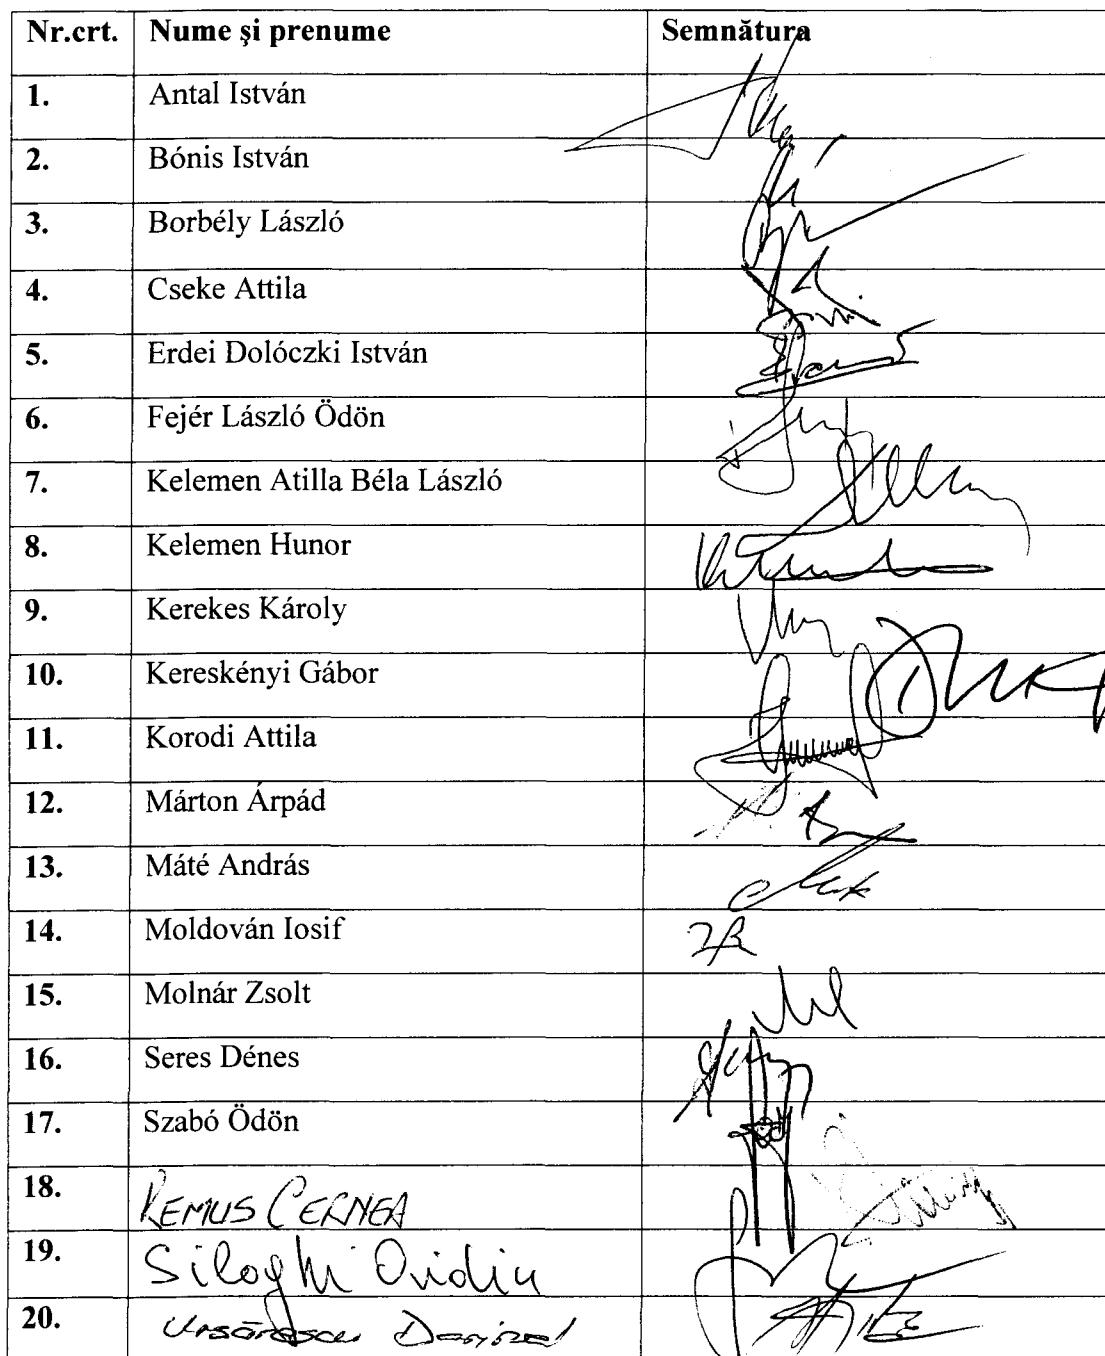 Nr.crt. Nume şi prenume Semnătura
1. Antal István
2. Bónis István
3. Borbély László
4. Cseke Attila
5. Erdei Dolóczki István
6. Fejér László Ödön
7. Kelemen Atilla Béla László
8. Kelemen Hunor
9. Kerekes Károly
10. Kereskényi Gábor
11. Korodi Attila
12. Márton Árpád
13. Máté András
14. Moldován Iosif
15. Molnár Zsolt
16. Seres Dénes
17. Szabó Ödön
18. REMUS CERNEA
19. Siloghi Ovidiu
20.